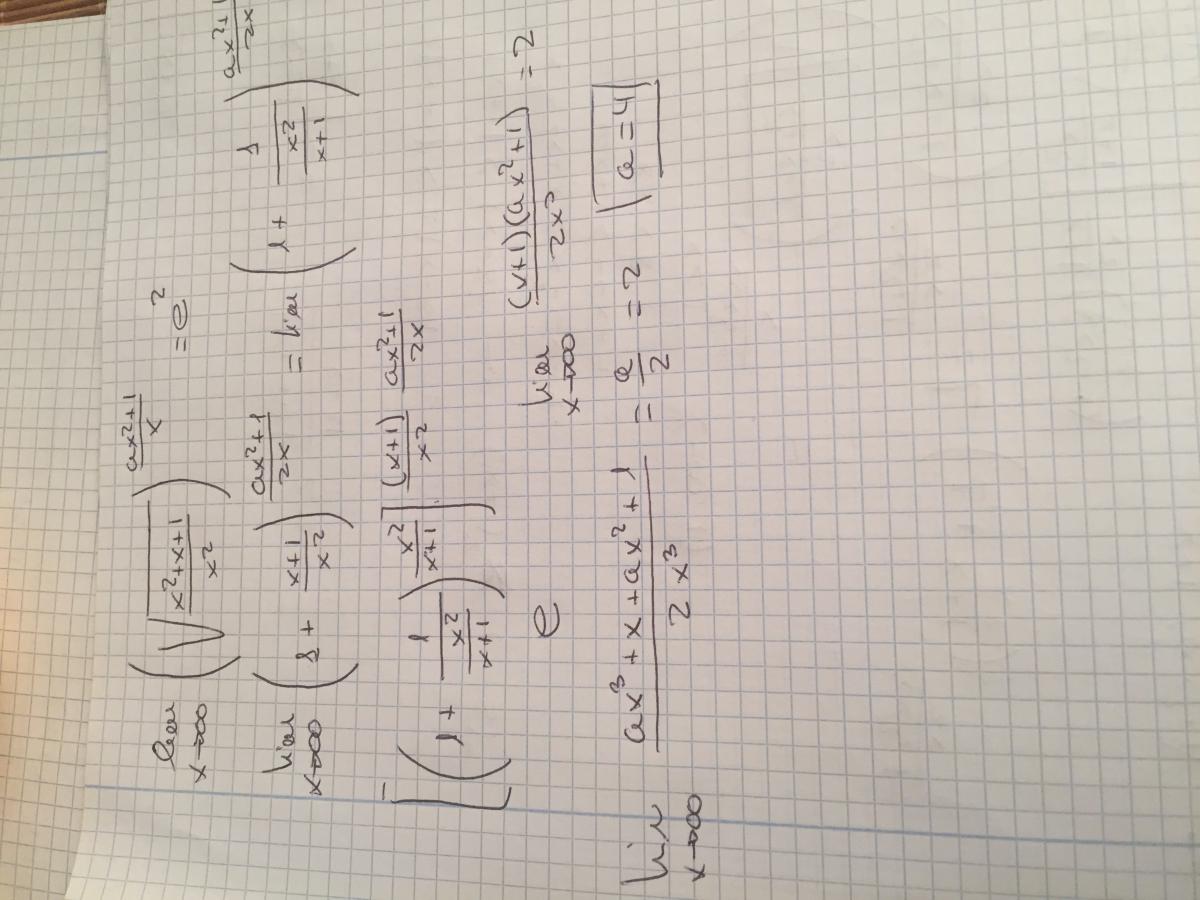 lim x→∞ (√((x²+x+1)/x²))^((ax²+1)/x) = e²
lim x→∞ (1 + (x+1)/x²)^((ax²+1)/2x) = lim (1 + 1/(x²/(x+1)))^((ax²+1)/2x)
= [(1 + 1/(x²/(x+1)))^(x²/(x+1))]^((x+1)/x² (ax²+1)/2x)
e lim x→∞ (x+1)(ax²+1)/2x³ = 2
lim x→∞ (ax³+x+ax²+1)/2x³ = a/2 = 2 a=4